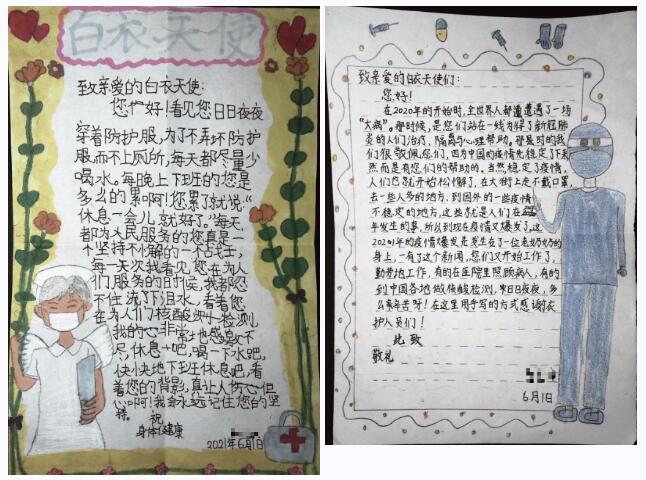 白衣天使
致亲爱的白衣天使:
好!看见您日日夜夜
穿着防护服,为了不弄坏防护
服而不上厕所,每天都尽量少
喝水。每晚上下班的您是
多么的累啊!您累了就说:“
休息一会儿就好了。”每天
都为人民服务的您真是一
个坚持不懈的一名战士,
每一天次我看见您在为人
们服务的时候,我都忍
不住流了泪水,看着您
在为人们核酸检测
我的心非常地感
休息一吧,喝一下水吧,
快快地下班休息吧,看
着您的背影,真让人伤心但
心啊!我会永远记住您的坚
持。 祝
身体健康
2021年6月1日
致亲爱的白衣天使们:
您好!
在2020年的开始时,全世界人都遭遇了一场
“大病”。那时候,是您们站在一线为得了新冠肺
炎的人们治疗、隔离与心理帮助。那是时的我
们很敬佩您们,因为中国的疫情先稳定下来
然而是有您们的帮助的。当然稳定了疫情,
人们也就开始松懈了,在大街上走不戴口罩,
去一些人多的地方,到国外的一些疫情
不稳定的地方,这些就是人们在
年发生的事,所以到现在疫情又爆发了,这
2021年的疫情爆发是发生在了一位老奶奶的
身上,一有了这个新闻,您们又开始工作了,
勤劳地工作,有的在医院里照顾病人,有的
到中国各地做核酸检测,日日夜夜,多
么来辛苦呀!在这里用手写的方式感谢医
护人员们!
此致
敬礼
6月1日